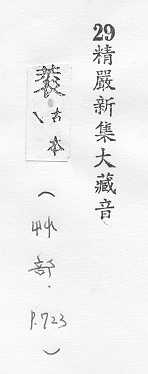 29精嚴新集大藏音
古本
(艸部.
P.723)